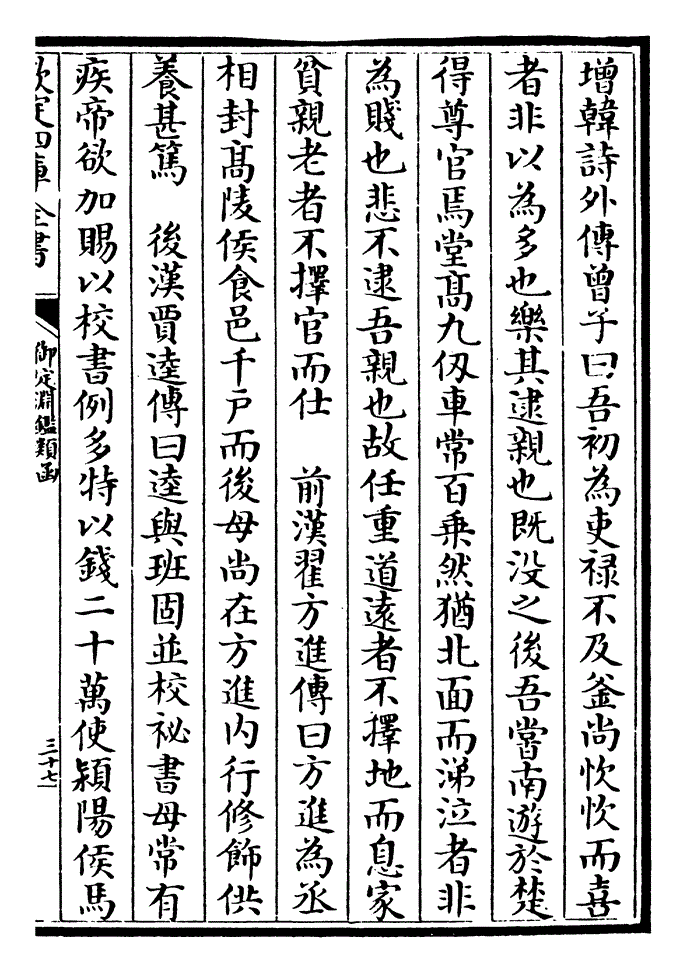 增韓詩外傳曾子曰吾初為吏禄不及釜尚忻忻而喜
者非以為多也樂其逮親也既没之後吾嘗南遊於楚
得尊官焉堂髙九仭車常百乗然猶北面而涕泣者非
為賤也悲不逮吾親也故任重道遠者不擇地而息家
貧親老者不擇官而仕　前漢翟方進傳曰方進為丞
相封髙陵侯食邑千戸而後母尚在方進内行修飾供
養甚篤　後漢賈逵傳曰逵與班固並校祕書母常有
疾帝欲加賜以校書例多特以錢二十萬使潁陽侯馬
欽定四庫全書
御定淵鑑類函
三十七